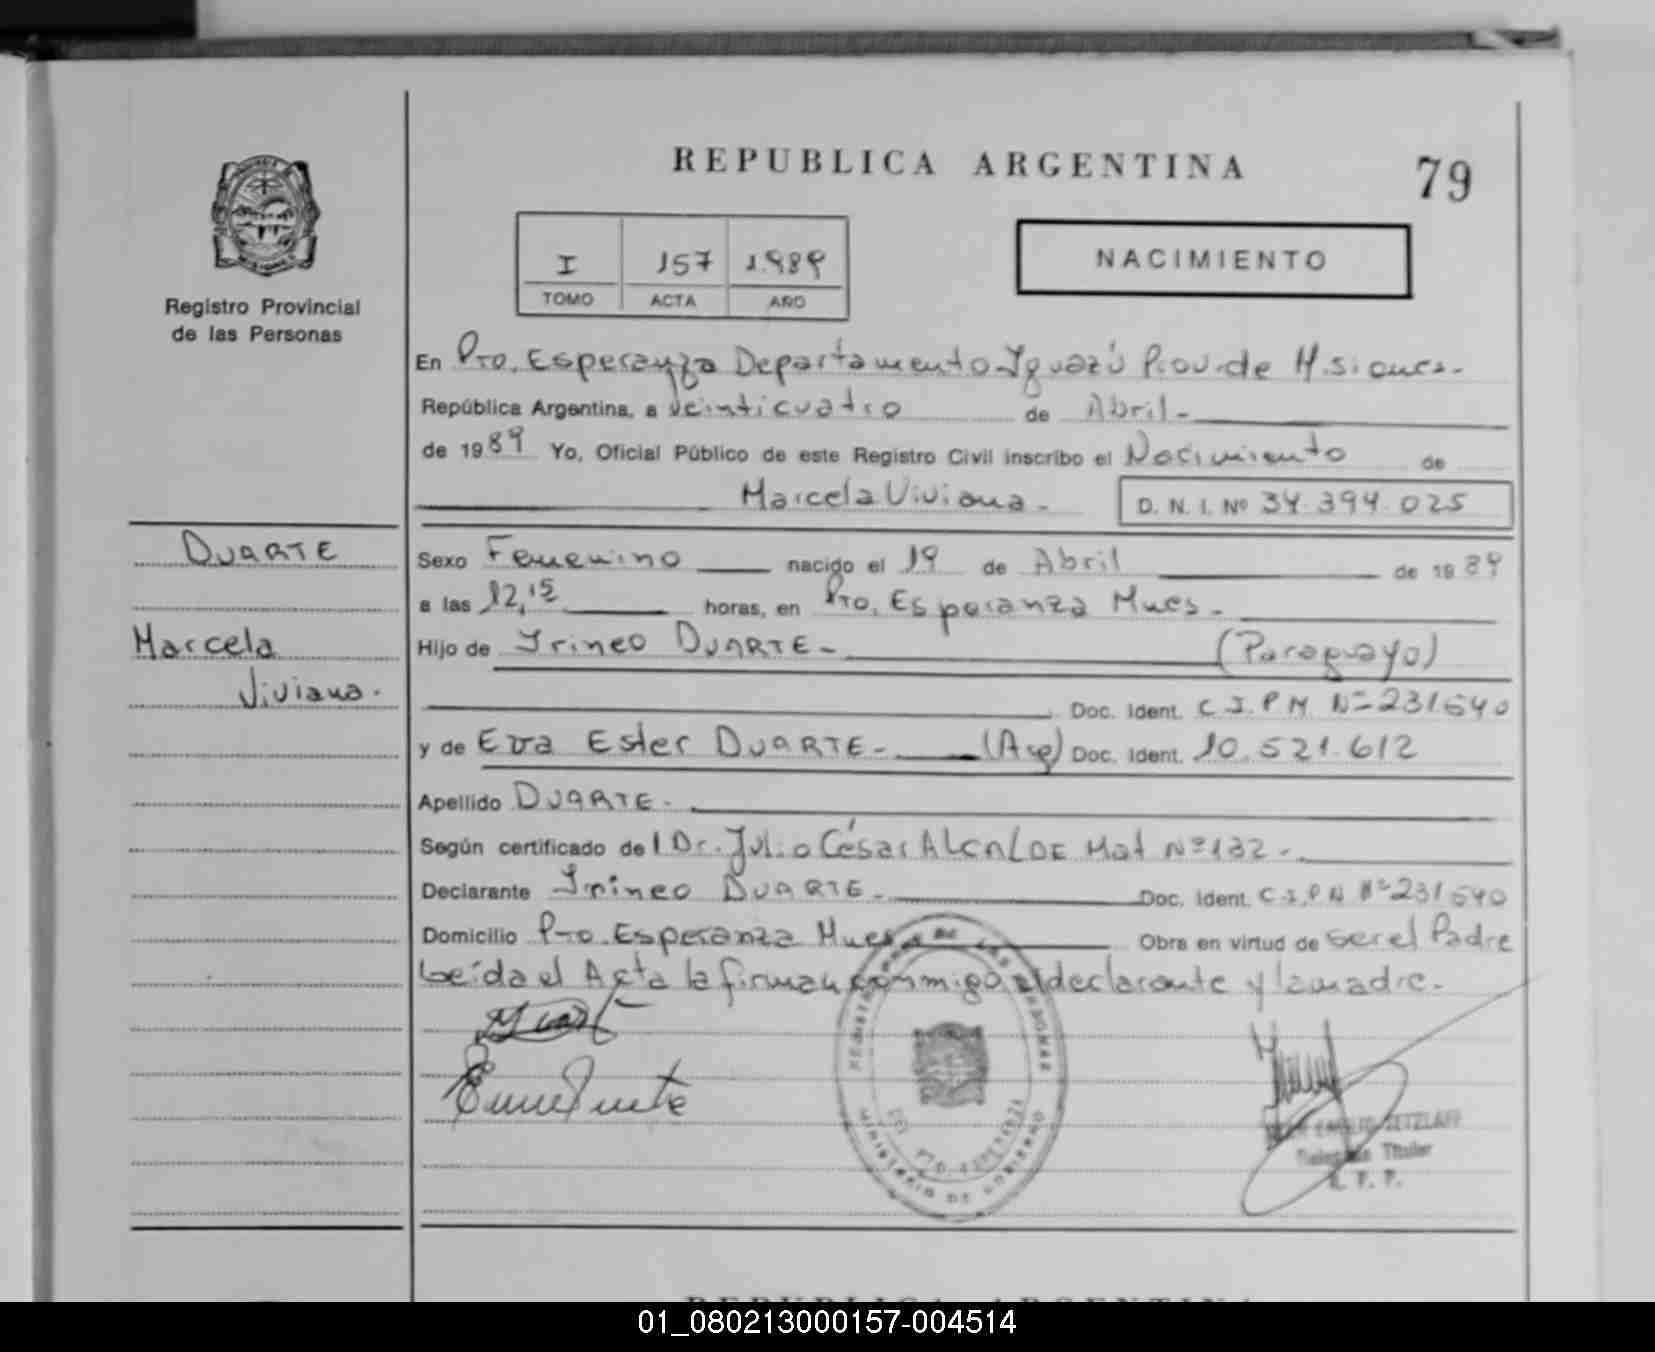 REPUBLICA ARGENTINA
79
I 157 1.989
TOMO ACTA AÑO
NACIMIENTO
Registro Provincial
de las Personas
En Pto. Esperanza Departamento Iguazú Prov. de Misiones.-
República Argentina, a veinticuatro de Abril-
de 1989 Yo, Oficial Público de este Registro Civil inscribo el Nacimiento de
Marcela Viviana.- D. N. I. Nº 34.394.025
DUARTE
Marcela
Viviana.
Sexo Femenino nacido el 19 de Abril de 1989
a las 12,15 horas, en Pto. Esperanza Mnes.-
Hijo de Irineo DUARTE- (Paraguayo)
Doc. Ident. C.I.P.M Nº 231640
y de Eva Ester DUARTE- (Arg) Doc. Ident. 10.521.612
Apellido DUARTE.-
Según certificado del Dr. Julio César ALCALDE Mat Nº 132.-
Declarante Irineo DUARTE.- Doc. Ident. C.I.P.M Nº 231640
Domicilio Pto. Esperanza Mnes Obra en virtud de ser el Padre
Leída el Acta la firman conmigo el declarante y la madre.-
MINISTERIO DE GOBIERNO
SETZLAFF
Titular
01_080213000157-004514